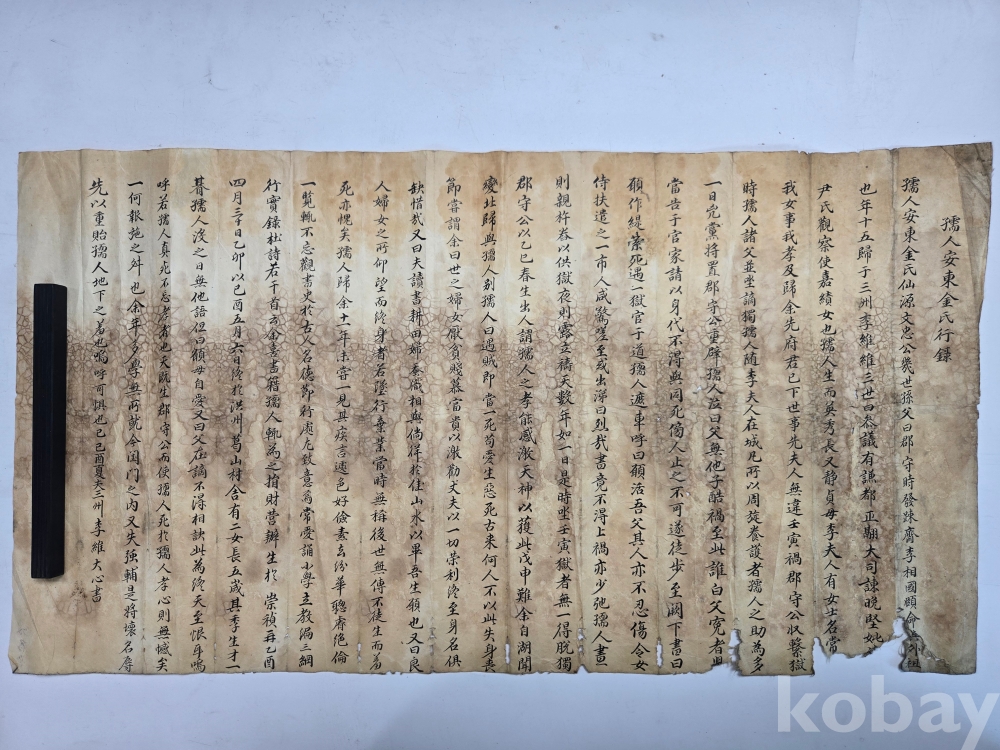 孺人安東金氏行錄
孺人安東金氏仙源文忠公幾世孫父曰郡守時發踈齋李相國頤命外祖
也年十五歸于三洲李維維三世曰參議有謙都正翮大司諫晚堅妣
尹氏觀察使嘉績女也孺人生而英秀長又靜貞母李夫人有女士名常
我女事我孝及歸余先府君已下世事先夫人無違壬寅禍郡守公收繫獄
時孺人諸父並坐謫獨孺人隨李夫人在城凡所以周旋養護者孺人之助為多
一日兇黨將置郡守公重辟孺人泣曰父無他子酷禍至此誰白父寃者
當告于官家請以身代不得與同死傷人止之不可遂徒步至闕下書曰
願作緹縈死遇一獄官于道孺人遮車呼曰願活吾父其人亦不忍傷令女
侍扶遣之一市人咸驚嗟至或出涕曰烈哉書竟不得上禍亦少弛孺人晝
則親杵舂以供獄夜則露立禱天數年如一日是時坐壬寅獄者無得脫獨
郡守公以乙巳春生出人謂孺人之孝能感激天神以獲此戊申難余自湖聞
變北歸與孺人別孺人曰遇賊即當一死苟愛生惡死古來何人不以此失身喪
節嘗謂余曰世之婦女厭貧賤慕富貴以激勸丈夫以一切榮利終至身名俱
缺惜哉又曰夫讀書耕田婦舂織相與倘徉於佳山水以畢吾生願也又曰良
人婦女之所仰望而終身者若墮行棄業當時無稱後世無傳不徒生而羞
死亦愧矣孺人歸余十一年未嘗一見其疾言遽色好儉素玄紛華聰睿絶倫
一覽輒不忘觀書史於古人名德節行處尤致意焉常愛誦小學立教編三綱
行實錄杜詩若千首云余喜書籍孺人輒為之損財營辦生於崇禎再乙酉
四月三十日乙卯以己酉五月六日終於洪州葛山村舍有二女長五歲其季生才一
朞孺人沒之日無他語但曰願毋自愛又曰父在謫不得相訣此為終天至恨耳嗚
呼若孺人真死不忘孝者也天旣生郡守公而使孺人死於孺人孝心則無憾矣
一何報施之舛也余年少學無所就今閨門之內又失强輔是將壞名辱
先以重貽孺人地下之羞也嗚呼可惧也已己酉夏夫三洲李維大心書
kobay